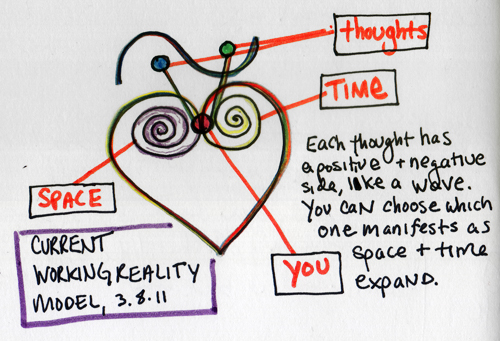 thoughts
TIME
Each thought has
a positive + negative
side, like a wave.
You can choose which
one manifests as
space + time
expand.
SPACE
CURRENT
WORKING REALITY
MODEL, 3.8.11
YOU